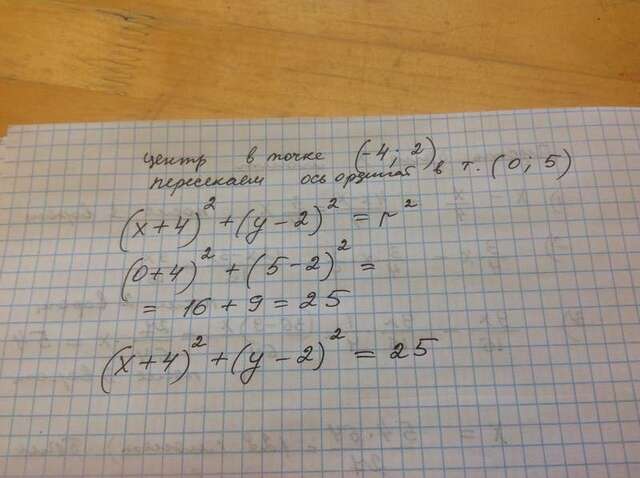 центр в точке (-4; 2)
пересекаем ось ординат в т. (0; 5)
(x+4)² + (y-2)² = r²
(0+4)² + (5-2)² =
= 16 + 9 = 25
(x+4)² + (y-2)² = 25